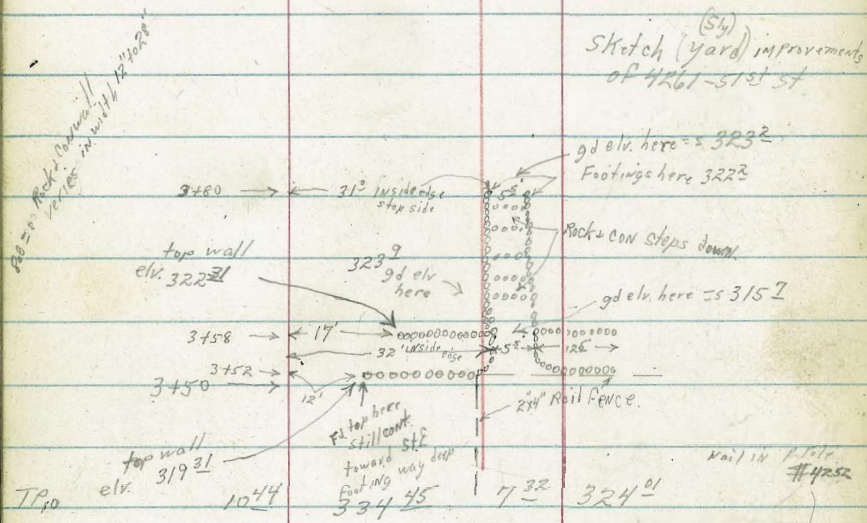 (Sly)
Sketch (yard) improvements
of 4261-51st st
Rock & Con wall
veries in width 12" to 28"
gd elv. here = s 323²
Footings here 322²
3+80
31⁰ inside edge
step side
5⁵'
Rock & CON Steps down.
top wall
elv. 322
323⁹
gd elv
here
gd elv. here = s 315⁷
3+58
17'
32' inside edge
5⁵
12⁵
3+52
3+50
12'
2"x4" Rail Fence.
top here
still cont.
toward St &
Footing way deep
top wall
elv. 319³¹
Nail IN P. Pole
#4252
TP10
10⁴⁴
334⁴⁵
7³²
324⁰¹